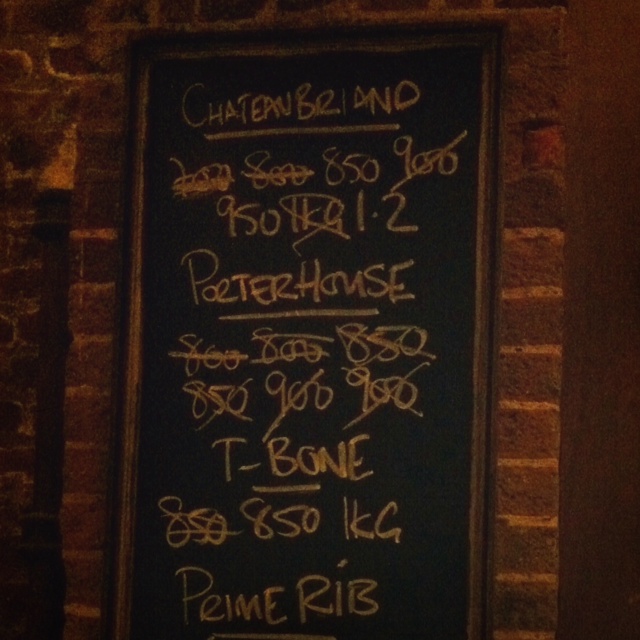 CHATEAUBRIAND
800 850 900
950 1KG 1.2
PORTERHOUSE
800 800 850
850 900 900
T-BONE
850 850 1KG
PRIME RIB